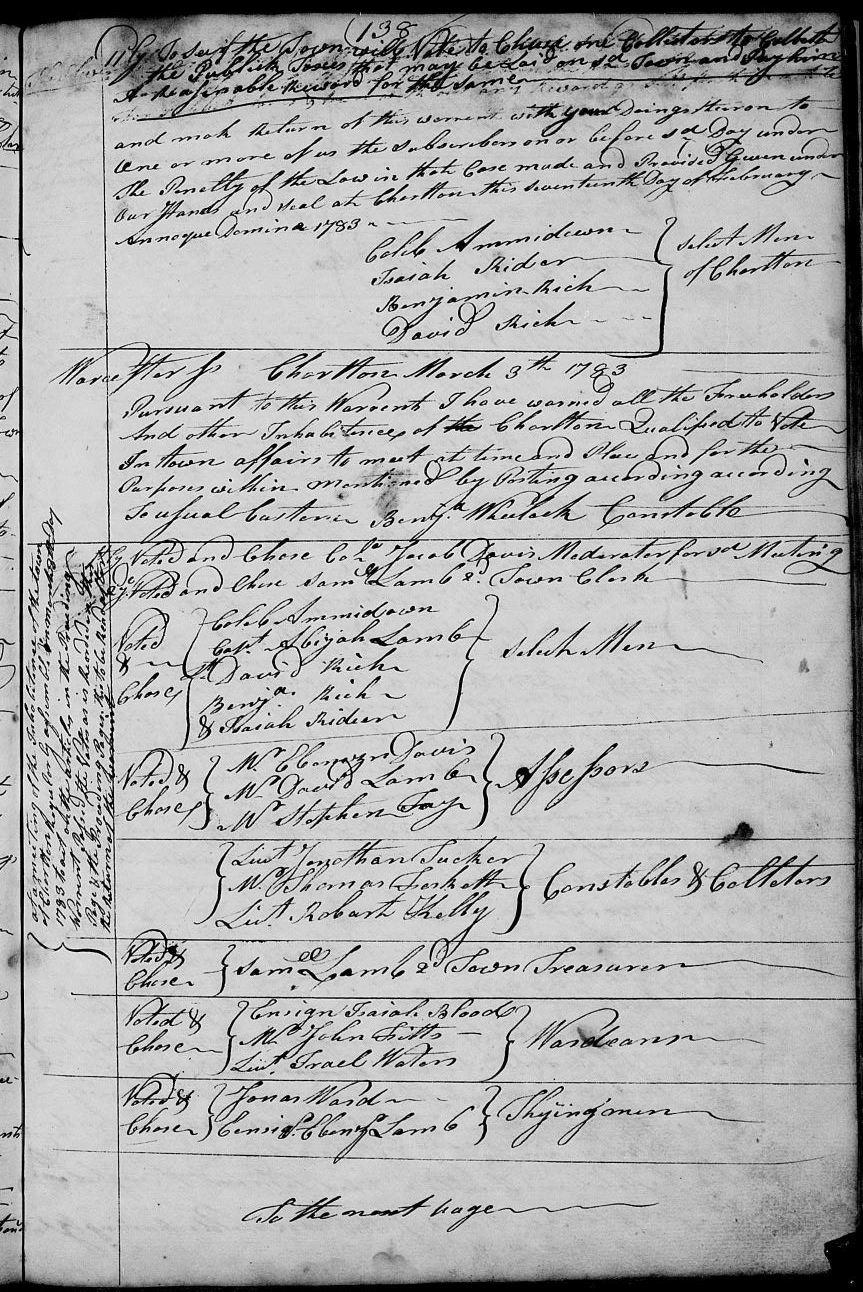 138
11ly To see if the Town will Vote to Chuse one Collector to Collect
the Publick Taxes that may be Laid on sd Town and Pay him
A Reasonable Reward for the same
and mak Return of this warrent with your Doings thereon to
One or more of us the subscribers on or before sd Day under
The Penelty of the Law in that Case made and Provised Given under
Our Hands and seal at Chorlton this seventeenth Day of February
Annoque Domina 1783
Caleb Ammidown
Isaiah Rider
Benjamin Rich
David Rich
select Men
of Chorlton
Worcester ss Chorlton March 3th 1783
Pursuant to this Warrent I have warned all the Freeholders
And other Inhabitence of the Chorlton Qualifised to Vote
In town affairs to meet at time and Place and for the
Purposes within mentioned by Posting according according
To usual Custom Benja Wheelock Constable
1ly Voted and Chose Colo Jacob Davis Moderater for sd Meeting
2ly Voted and Chose Samll Lamb 2d Town Clerk
Voted
&
Chose
Caleb Ammidown
Capt Abijah Lamb
David Rich
Benja Rich
& Isaiah Rider
select Men
Voted &
Chose
Mr Ebenezn Davis
Mr David Lamb
Mr Stephen Fay
Assessors
Liut Jonothan Tucker
Mr Thomas Foskett
Liut Robart Kelly
Constables & Colletors
Voted &
Chose
Samell Lamb 2d Town Treasurer
Voted &
Chose
Ensign Isaiah Blood
Mr John Fitts
Liut Irael Waters
Wardeans
Voted &
Chose
Jonas Ward
Ensign Ebenr Lamb
Thyingmen
To the next page
at a meeting of the Inhabitence of the town
of Chorlton Regulerly assembled on march 3th Day
1783 to act on the articles in the Preceding
Worrent Passed the Votes as is Recorded in this
Page & the Proceeding Pages this to be Read after
the Returne of the